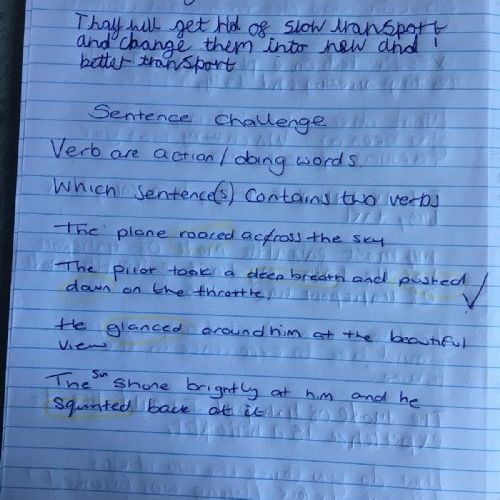 Thay will get rid of slow transport
and change them into new and
better transport
Sentence challenge
Verb are action/doing words.
Which sentence(s) contains two verbs
The plane roared across the sky
The pilot took a deep breath and pushed
down on the throttle,
He glanced around him at the beautiful
view
The sun shone brightly at him and he
squinted back at it